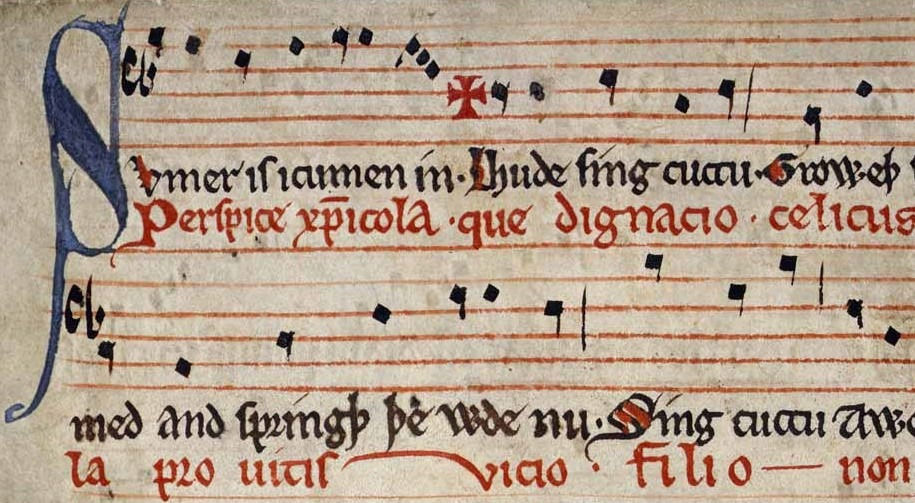 Svmer is icumen in· Lhude sing cuccu· Groweþ
Perspice xp̄icola ·que dignacio · celicus
med and springþ þe wde nu· Sing cuccu Aw
la pro uitis vicio · filio — non